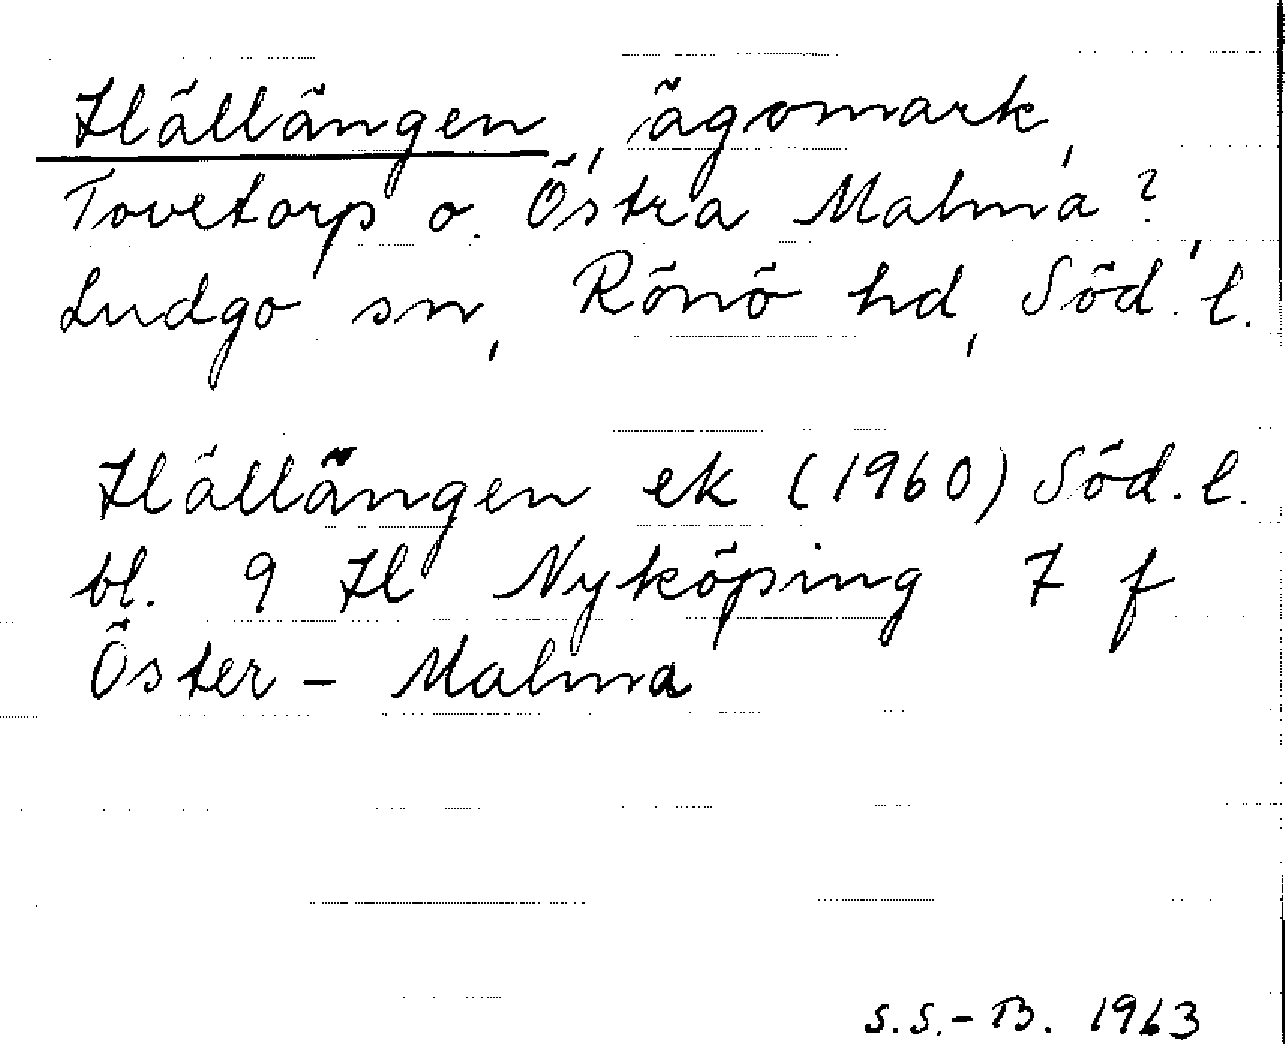 Hällängen, ägomark,
Tovetorp o. Östra Malma?,
Ludgo sn, Rönö hd, Söd. l.
Hällängen ek (1960) Söd. l.
bl. 9 H Nyköping 7 f
Öster-Malma
S.S.-B. 1963